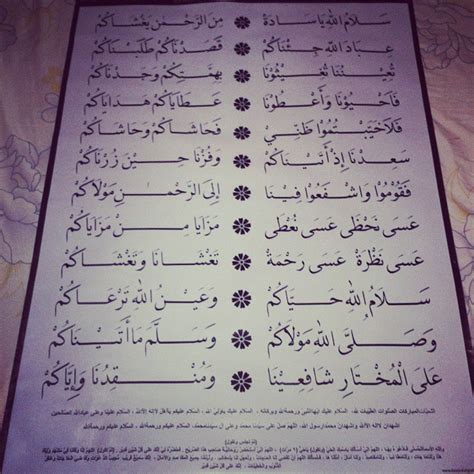 سَلَامُ اللهِ يَا سَادَةْ ❁ مِنَ الرَّحْمٰنِ يَغْشَاكُمْ
عِبَادَ اللهِ جِئْنَاكُمْ ❁ قَصَدْنَاكُمْ طَلَبْنَاكُمْ
تُعِيْنُنَا تُغِيْثُوْنَا ❁ بِهِمَّتِكُمْ وَجَدْوَاكُمْ
فَاَحْبُوْنَا وَأَعْطُوْنَا ❁ عَطَايَاكُمْ هَدَايَاكُمْ
فَلَاخَيَّبْتُمُوْا ظَنِّيْ ❁ فَحَاشَاكُمْ وَحَاشَاكُمْ
سَعِدْنَا إِذْ أَتَيْنَاكُمْ ❁ وَفُزْنَا حِيْنَ زُرْنَاكُمْ
فَقُوْمُوْا وَاشْفَعُوْا فِيْنَا ❁ إِلَى الرَّحْمٰنِ مَوْلَاكُمْ
عَسَى نَحْظَى عَسَى نُعْطَى ❁ مَزَايَا مِنْ مَزَايَاكُمْ
عَسَى نَظْرَةْ عَسَى رَحْمَةْ ❁ تَغْشَانَا وَتَغْشَاكُمْ
سَلَامُ اللهِ حَيَّاكُمْ ❁ وَعَيْنُ اللهِ تَرْعَاكُمْ
وَصَلَّى اللهُ مَوْلَاكُمْ ❁ وَسَلَّمَ مَا أَتَيْنَاكُمْ
عَلَى الْمُخْتَارِ شَافِعِيْنَا ❁ وَمُنْقِذُنَا وَإِيَّاكُمْ